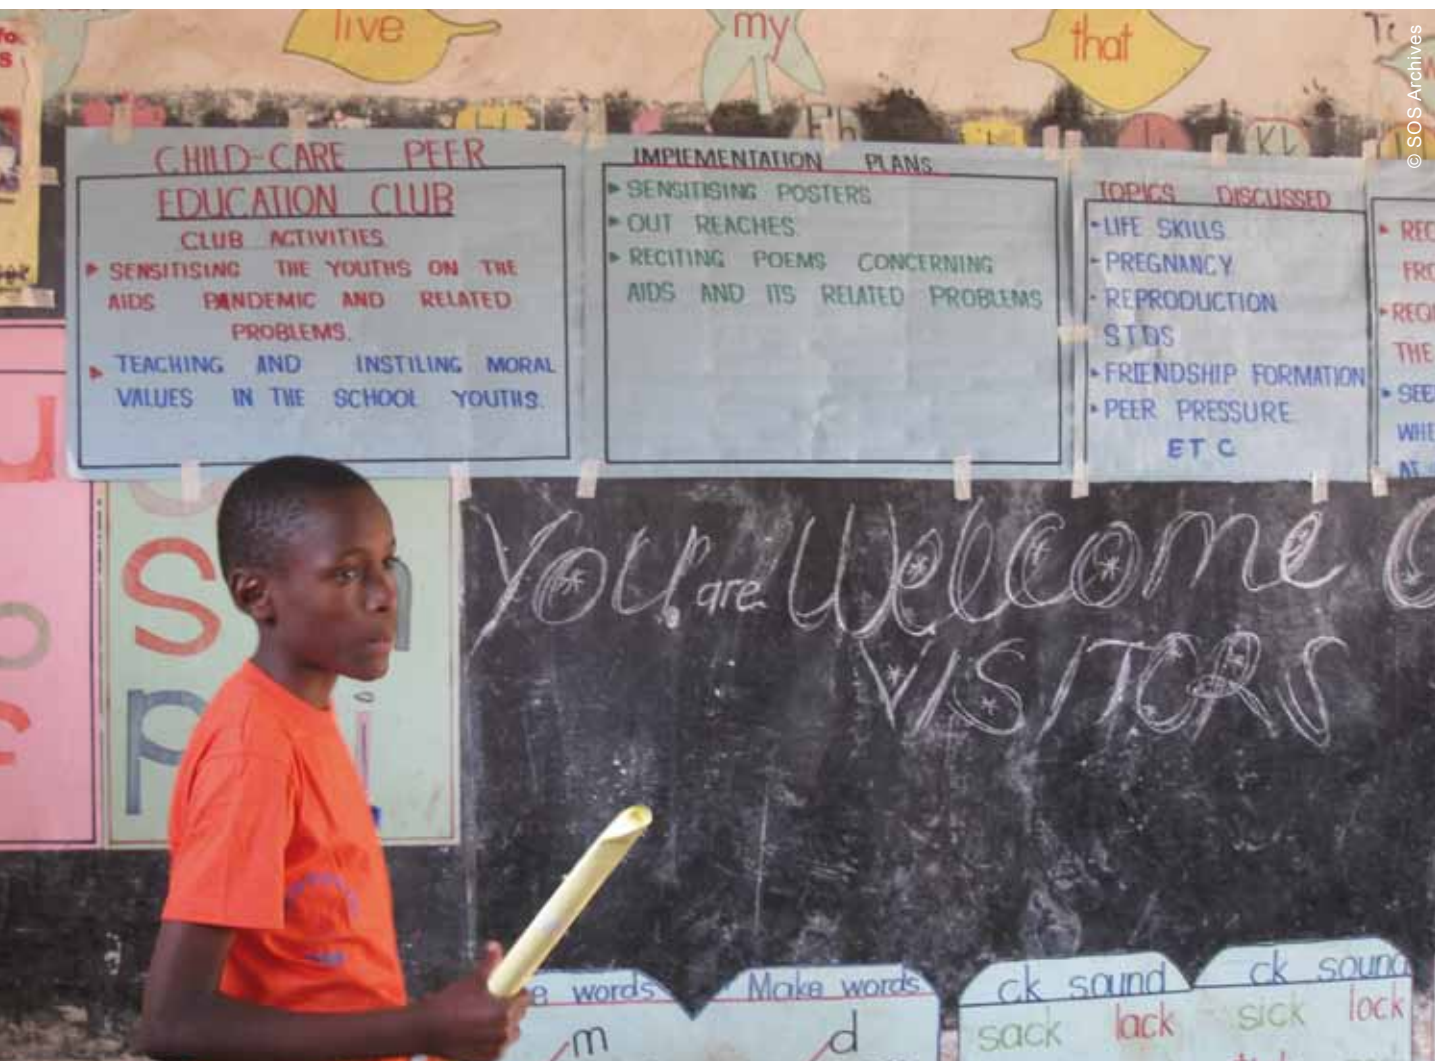 live
my
that
© SOS Archives
CHILD-CARE PEER
EDUCATION CLUB
CLUB ACTIVITIES
SENSITISING THE YOUTHS ON THE
AIDS PANDEMIC AND RELATED
PROBLEMS.
TEACHING AND INSTILING MORAL
VALUES IN THE SCHOOL YOUTHS.
IMPLEMENTATION PLANS
SENSITISING POSTERS
OUT REACHES.
RECITING POEMS CONCERNING
AIDS AND ITS RELATED PROBLEMS
TOPICS DISCUSSED
LIFE SKILLS
PREGNANCY
REPRODUCTION
STDS
FRIENDSHIP FORMATION
PEER PRESSURE
ETC
THE
u
s
p
i
You are Welcome
VISITORS
words
m
Make words
d
ck sound
sack lack
ck sound
sick lock